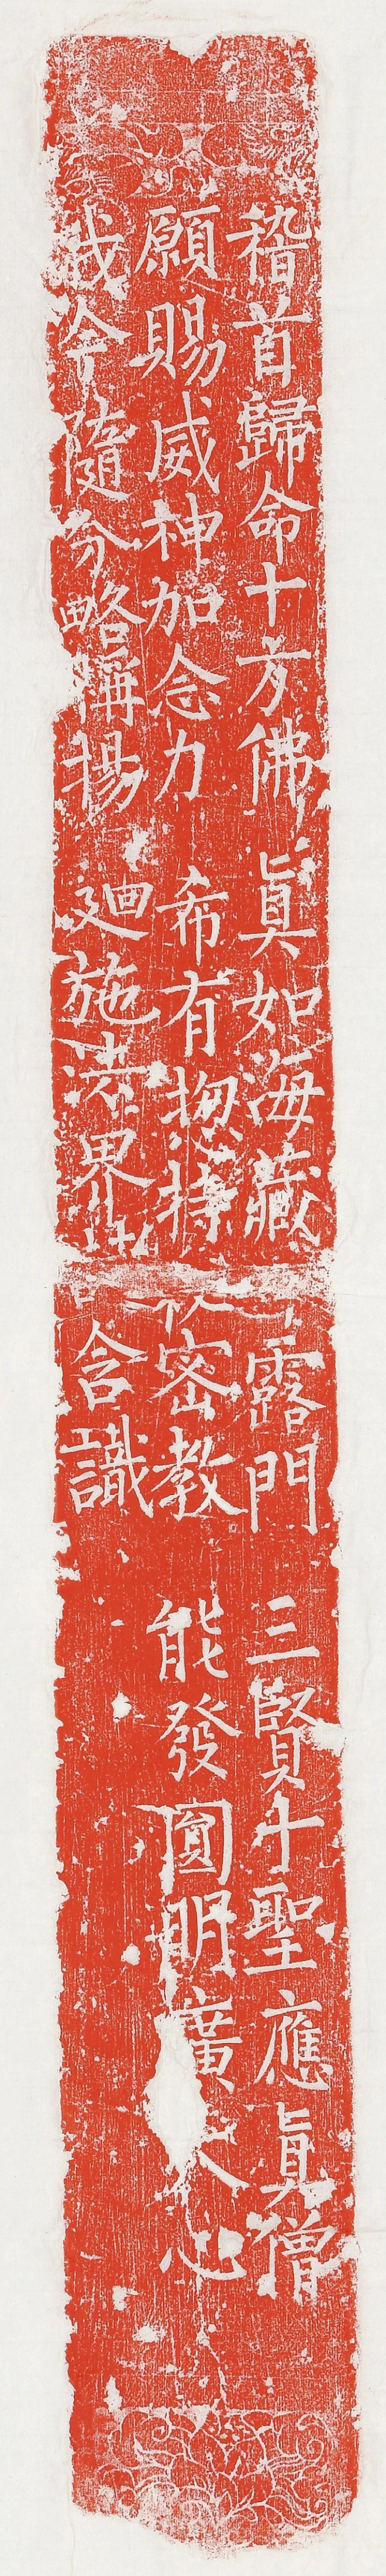 稽首歸命十方佛 眞如海藏露門 三賢十聖應眞僧
願賜威神加念力 希有揔持密教 能發圓明廣大心
我今隨分略稱揚 迴施法界含識